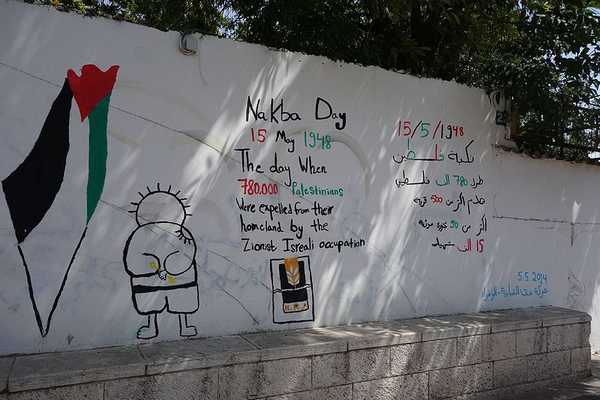 Nakba Day
15 May 1948
The day When
780.000 Palestinians
Were expelled from their
homeland by the
Zionist Isreali occupation
15/5/1948
نكبة فلسطين
طرد 780 الف فلسطيني
هدم اكثر من 500 قرية
اكثر من 50 مجزرة
15 الف شهيد
5.5.2014
حركة